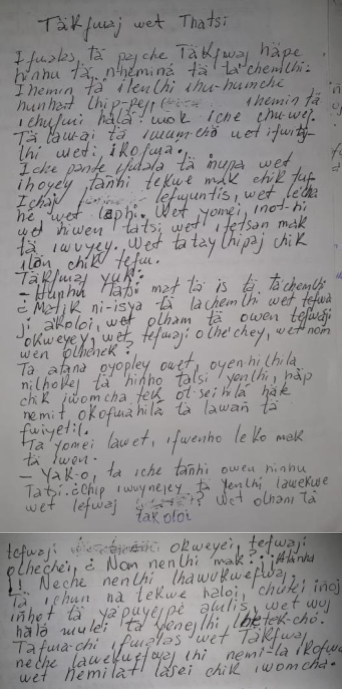 Täkfwaj wet Thatsi
Ifwalas, tä pajche Täkfwaj häpe
hinhu tä nheminá tä ta chemlhi.
Ihemin tä ilenlhi ihu-humche
hunhait lhip-pey, ihemin tä
ichufwi halá. wok iche chu-wej.
Tä lawai tä iwum-cho wet ifwity-
lhi weti ikofwa.
Iche pante ifwala tä nupa wet
ihoyey tañhi tekwe mak chik tuf
Ichäj lefwuntis, wet lecha
he wet laphi. Wet yomei, inot-hi
wet hiwen tatsi, wet itetsan mak
tä iwuyey. Wet tataylhipaj chik
ilon chik tefw.
Täkfwaj yuk:
- Hunhu Tatsi mat tä is tä tachemlhi
¿Matjk ni-isya tä lachemlhi wet tefwa
ji akoloi, wet olham tä owen tefwaji
okweyey, wet tefwaji olhechey, wet nom
wen olhenek?
Ta atana oyopley owet, oyenhilhila
nilhokej tä hinho tatsi yenlhi, häp
chik iwomcha tek ot-seihilá häk
nemit okofwahila tä lawan tä
fwiyetil.
Ta yomei lawet, ifwenho leko mak
tä iwen.
- Yak-o, ta iche tañhi owen hinhu
Tatsi. ¿Chip iwuynejey tä yenlhi lawekwe
wet lefwaj ? Wet olham tä
takoloi
tefwaji okweyei, tefwaji
olhechei, ¿Non nenlhi mak?
¡! Neche nenlhi lhawukwefwaj
Tä ichun na tekwe haloi, chutei inoj
inhot tä yapuyejpe atulis, wet wuj
halo mulei tä yenejhi lhetek-cho.
Tafwachi ifwalas wet Täkfwaj
neche lawekwefwaj lhi nemi-la ikofwa
wet hemilat lasei chik iwomcha.